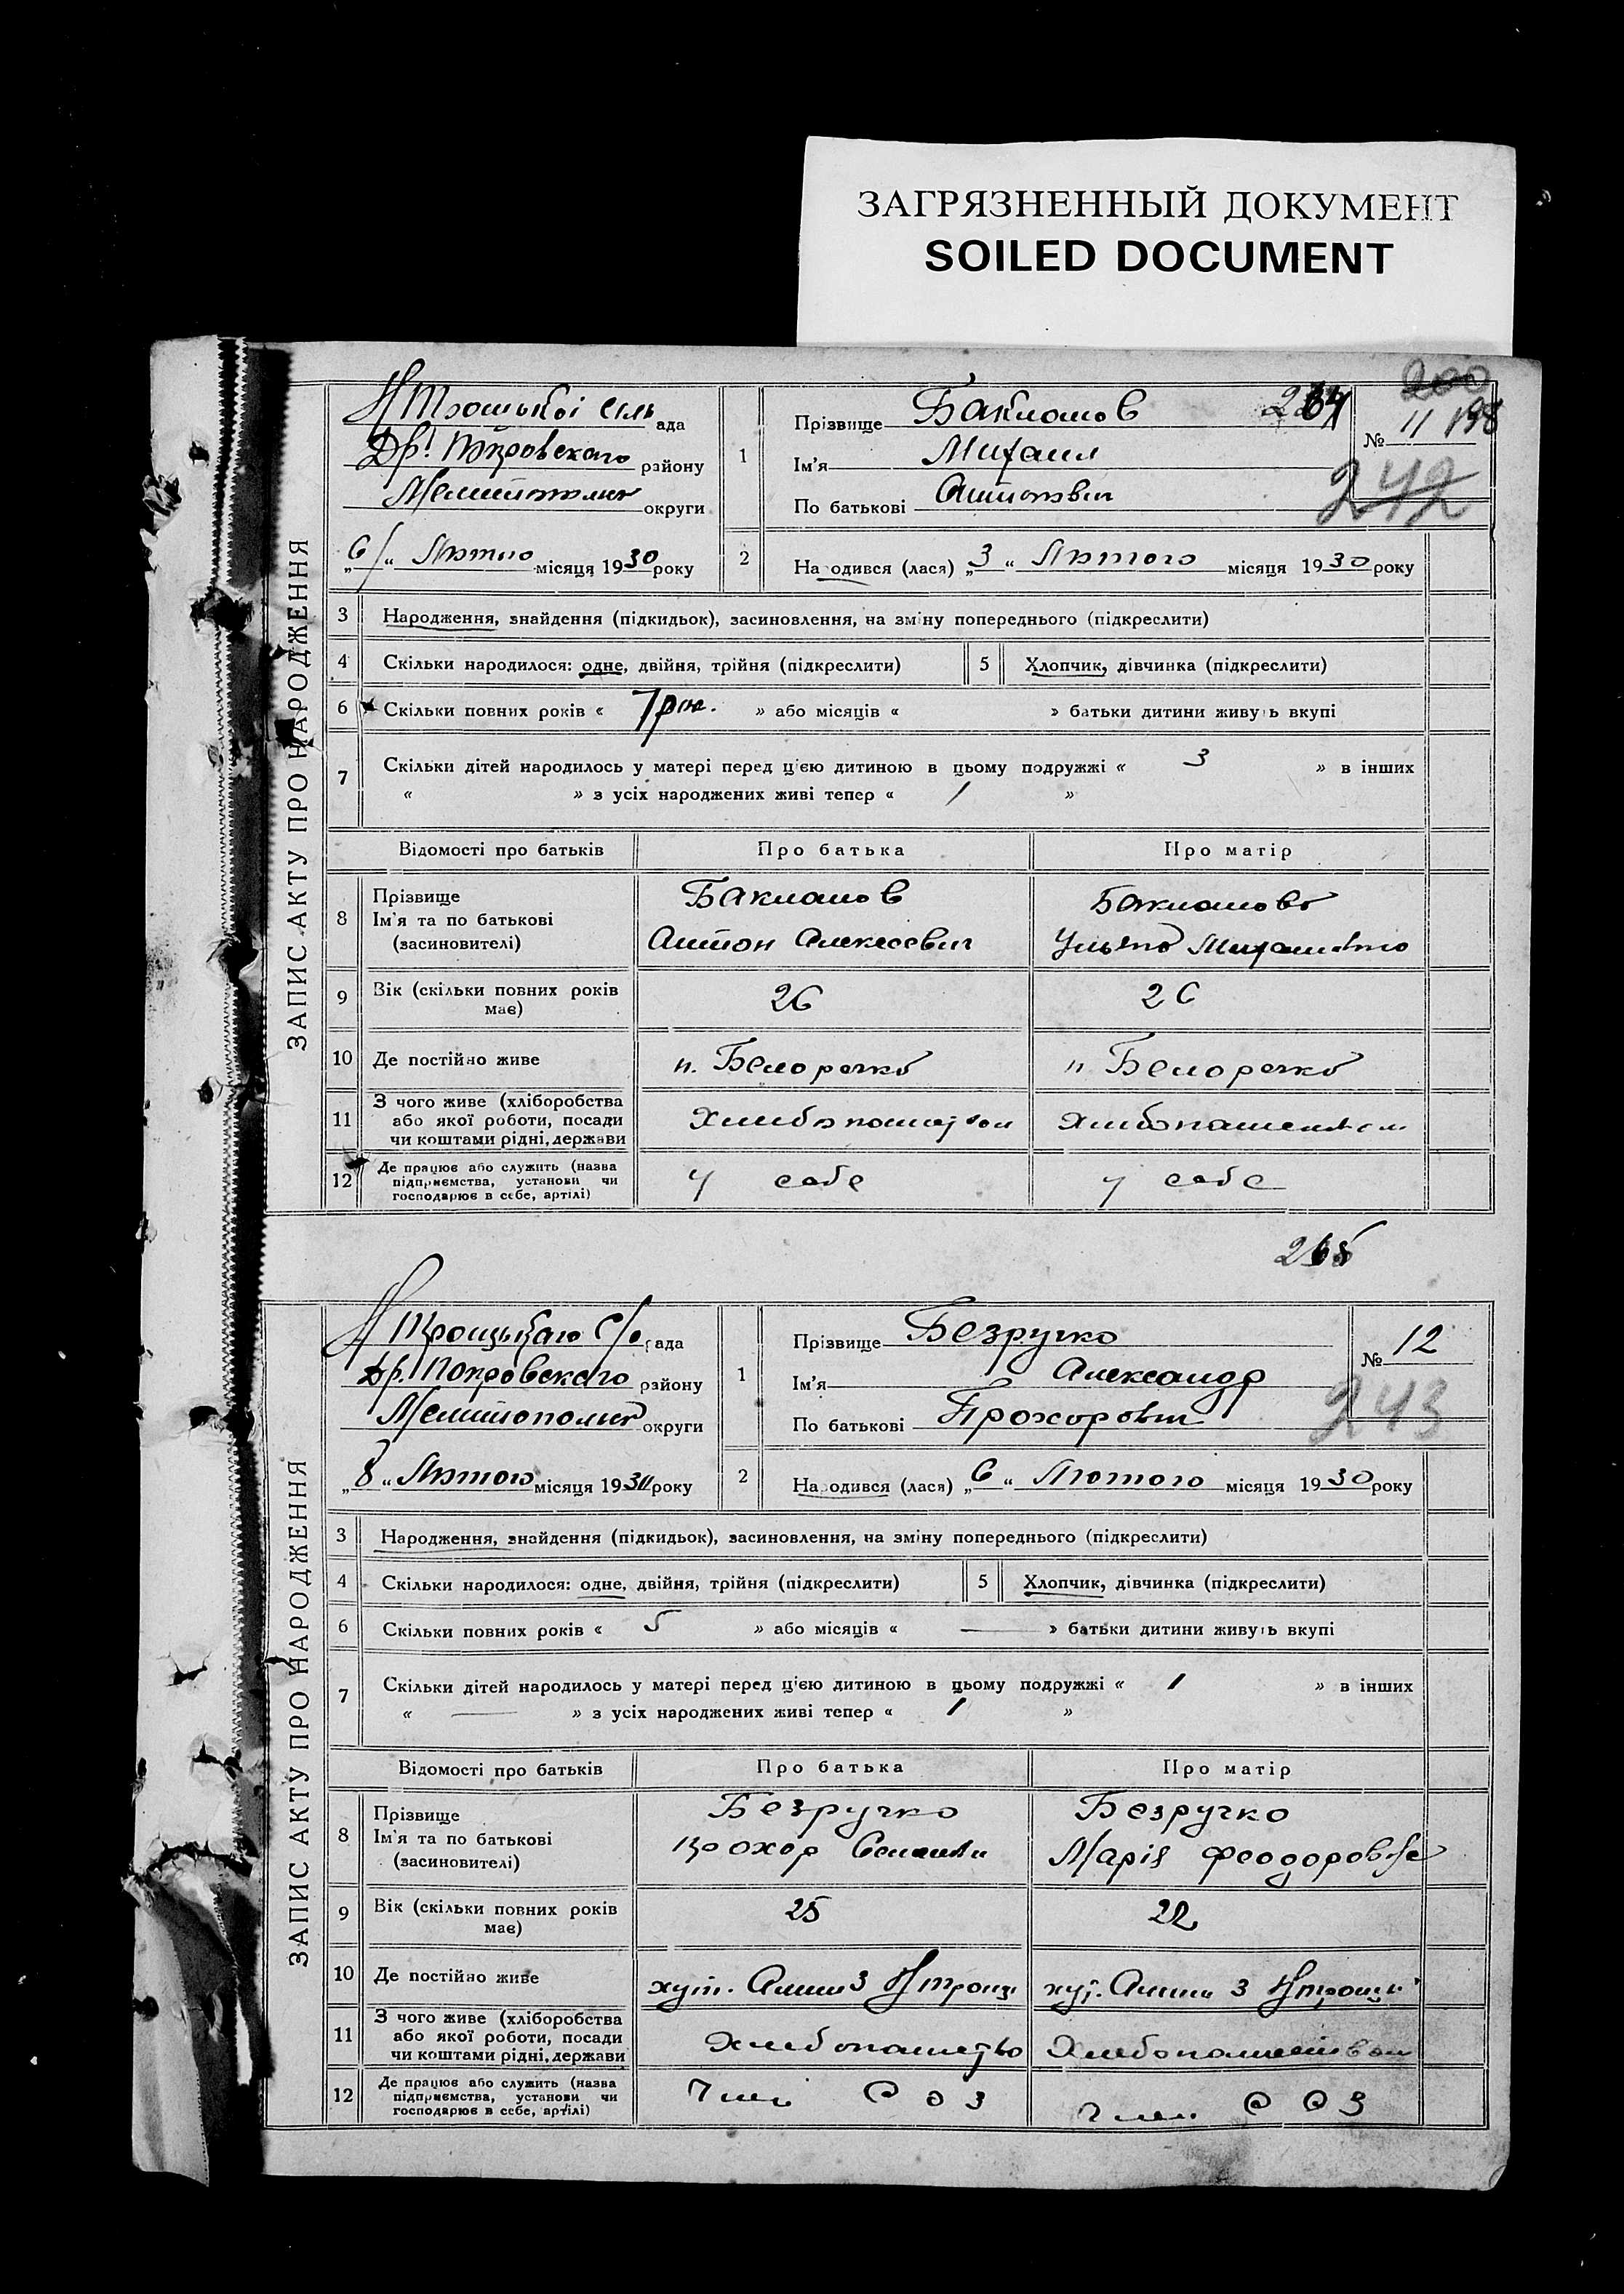 ЗАГРЯЗНЕННЫЙ ДОКУМЕНТ
SOILED DOCUMENT
ЗАПИС АКТУ ПРО НАРОДЖЕННЯ
Н Троцькоі Сіль ада
району
округи
„6“ Лютого місяця 1930 року
1
Прізвище Бакланов
Ім'я Михаил
По батькові Антонович
200
№ 11 198
242
2
Народився (лася) „3“ Лютого місяця 1930 року
3 Народження, знайдення (підкидьок), засиновлення, на зміну попереднього (підкреслити)
4 Скільки народилося: одне, двійня, трійня (підкреслити) 5 Хлопчик, дівчинка (підкреслити)
6 Скільки повних років « 7 рок. » або місяців « » батьки дитини живуть вкупі
7 Скільки дітей народилось у матері перед цією дитиною в цьому подружжі « 3 » в інших
« » з усіх народжених живі тепер « 1 »
Відомості про батьків Про батька Про матір
8 Прізвище
Ім'я та по батькові
(засновителі)
Бакланов
Антон Алексеевич
Бакланова
Ульяна Михайловна
9 Вік (скільки повних років
має)
26 26
10 Де постійно живе п. Белоречка п. Белоречка
11 З чого живе (хліборобства
або якої роботи, посади
чи коштами рідні, держави
12 Де працює або служить (назва
підприємства, установи чи
господарює в себе, артілі)
у себе у себе
265
ЗАПИС АКТУ ПРО НАРОДЖЕННЯ
Н Троцькаго С/ рада
Др. Покровского району
округи
„8“ Лютого місяця 1930 року
1
Прізвище Безручко
Ім'я Александр
По батькові Прохорович
№ 12
243
2
Народився (лася) „6“ Лютого місяця 1930 року
3 Народження, знайдення (підкидьок), засиновлення, на зміну попереднього (підкреслити)
4 Скільки народилося: одне, двійня, трійня (підкреслити) 5 Хлопчик, дівчинка (підкреслити)
6 Скільки повних років « 5 » або місяців « — » батьки дитини живуть вкупі
7 Скільки дітей народилось у матері перед цією дитиною в цьому подружжі « 1 » в інших
« — » з усіх народжених живі тепер « 1 »
Відомості про батьків Про батька Про матір
8 Прізвище
Ім'я та по батькові
(засиновителі)
Безручко
Прохор
Безручко
Марія Феодоровна
9 Вік (скільки повних років
має)
25 22
10 Де постійно живе
11 З чого живе (хліборобства
або якої роботи, посади
чи коштами рідні, держави
Хлебопашество Хлебопашеством
12 Де працює або служить (назва
підприємства, установи чи
господарює в себе, артілі)
Член С О З Член С О З